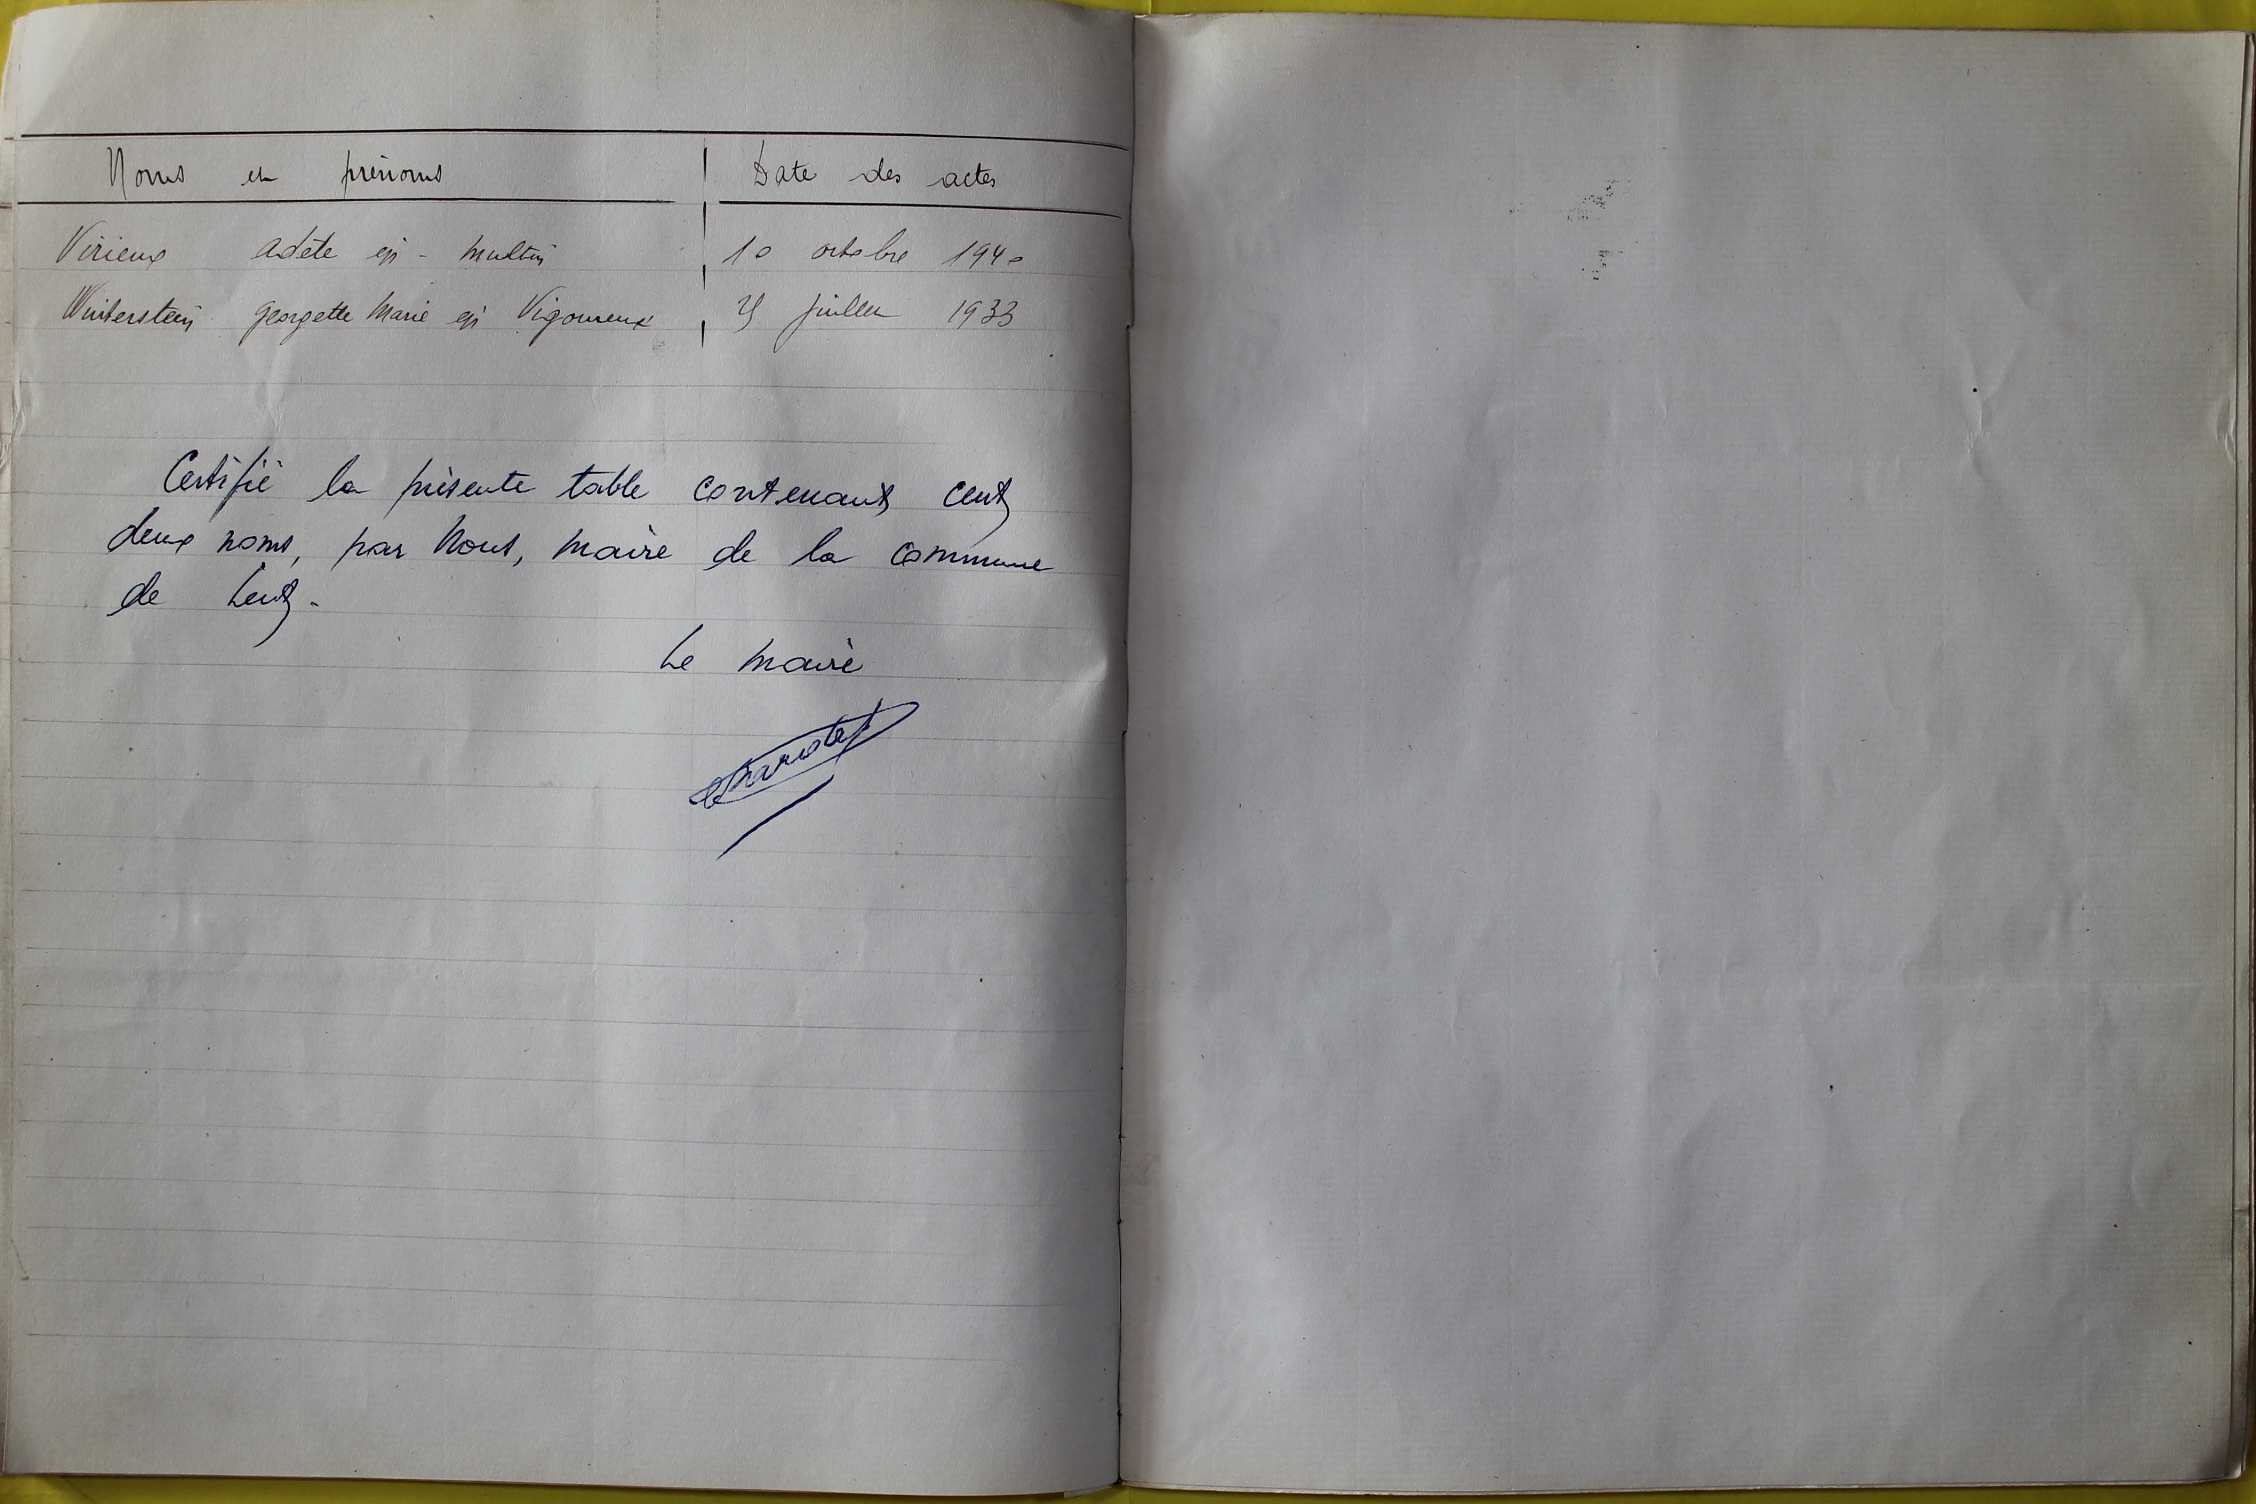 Noms et prénoms Date des actes
Virieux Adèle ép. Multin 10 octobre 1940
Winterstein Georgette Marie ép Vigoureux juillet 1933
Certifié la présente table contenant cent
deux noms, par Nous, Maire de la commune
de Lent.
Le Maire